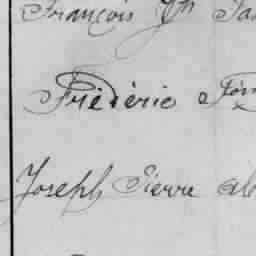 François Jh
Frédéric
Joseph Pierre